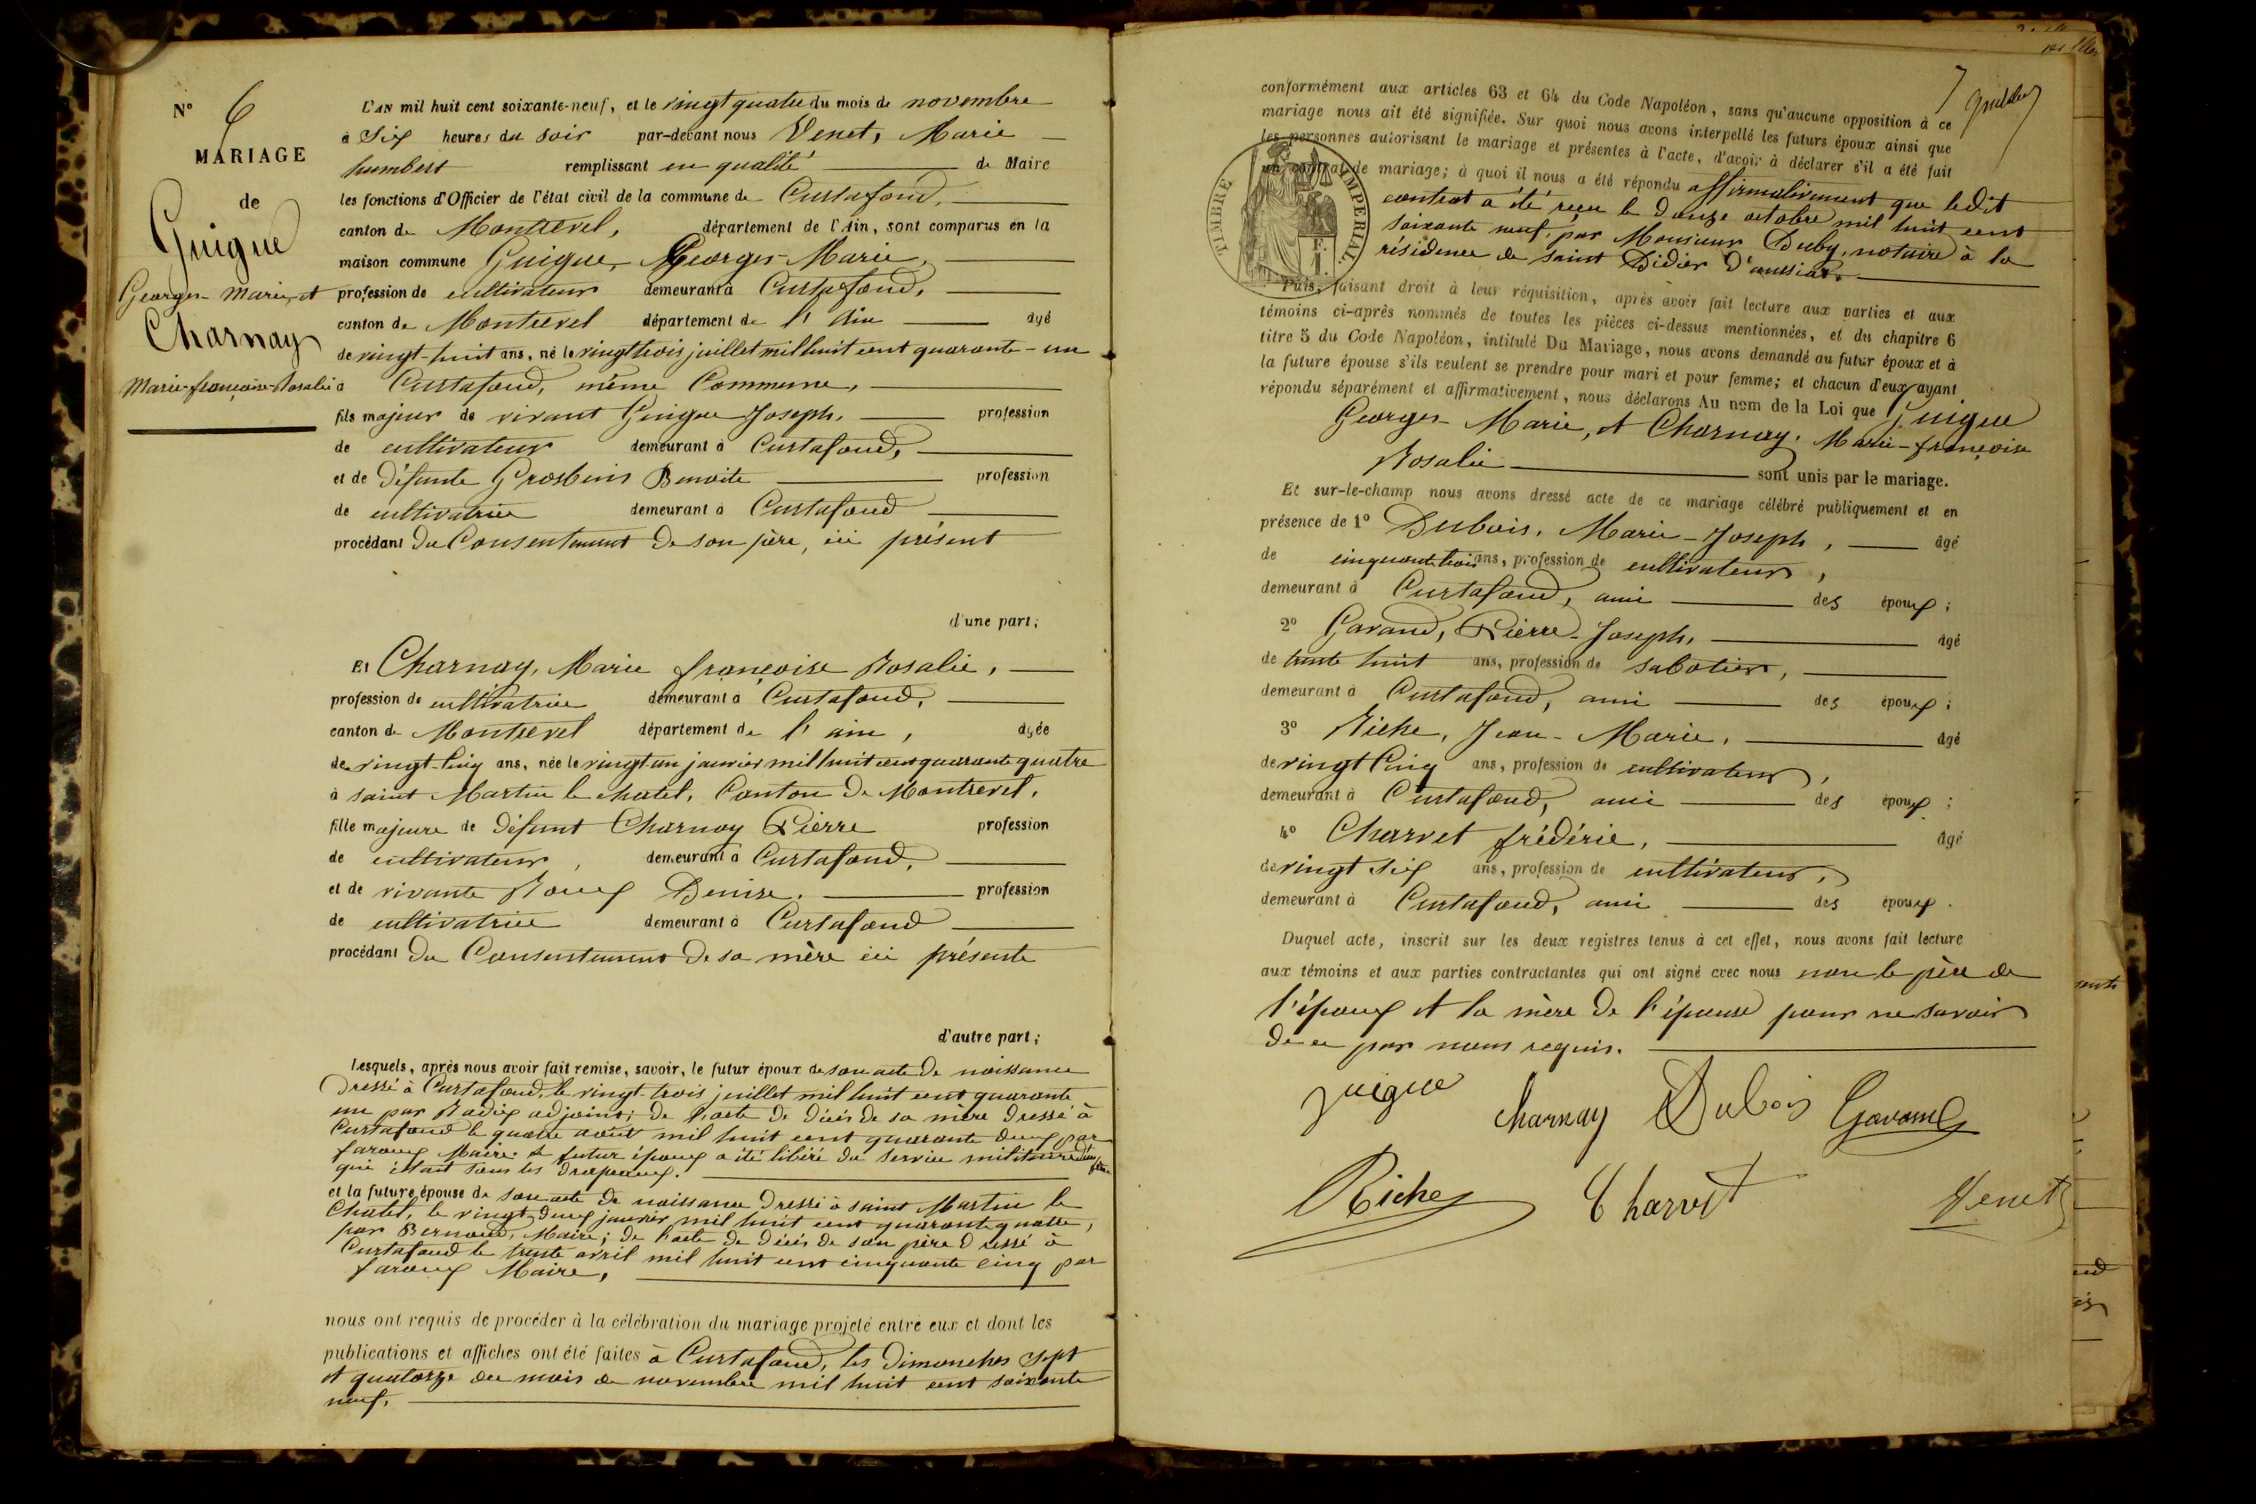 N° 6
MARIAGE
de
Guigue
Georges-Marie, et
Charnay
Marie-françoise-Rosalie
L'AN mil huit cent soixante-neuf, et le vingt quatre du mois de novembre
à Six heures du soir par-devant nous Venet, Marie
humbert remplissant en qualité de Maire
les fonctions d'Officier de l'état civil de la commune de Curtafond,
canton de Montrevel, département de l'Ain, sont comparus en la
maison commune Guigue, Georges-Marie,
profession de cultivateur demeurant à Curtafond,
canton de Montrevel département de l'Ain âgé
de vingt-huit ans, né le vingt trois juillet mil huit cent quarante-un
à Curtafond, même Commune,
fils majeur de vivant Guigue Joseph, profession
de cultivateur demeurant à Curtafond,
et de défunte Grosbuis Benoite profession
de cultivatrice demeurant à Curtafond
procédant du Consentement de son père, ici présent
d'une part;
Et Charnay, Marie françoise Rosalie,
profession de cultivatrice demeurant à Curtafond,
canton de Montrevel département de l'ain, âgée
de vingt-cinq ans, née le vingt-un janvier mil huit cent quarante quatre
à saint Martin le chatel, Canton de Montrevel,
fille majeure de défunt Charnay Pierre profession
de cultivateur, demeurant à Curtafond,
et de vivante Roux Denise, profession
de cultivatrice demeurant à Curtafond
procédant du Consentement de sa mère ici présente
d'autre part;
Lesquels, après nous avoir fait remise, savoir, le futur époux de son acte de naissance
dressé à Curtafond, le vingt-trois juillet mil huit cent quarante
un par Radix adjoint; de l'acte de décès de sa mère dressé à
Curtafond le quatre août mil huit cent quarante deux par
faroux Maire: le futur époux a été libéré du service militaire
qui était sous les drapeaux.
et la future épouse de son acte de naissance dressé à saint Martin le
Chatel, le vingt-deux janvier mil huit cent quarante quatre,
par Bernoud, Maire; de l'acte de décès de son père dressé à
Curtafond le trente avril mil huit cent cinquante cinq par
faroux Maire,
nous ont requis de procéder à la célébration du mariage projeté entre eux et dont les
publications et affiches ont été faites à Curtafond, les dimanches sept
et quatorze du mois de novembre mil huit cent soixante
neuf.
7
conformément aux articles 63 et 64 du Code Napoléon, sans qu'aucune opposition à ce
mariage nous ait été signifiée. Sur quoi nous avons interpellé les futurs époux ainsi que
les personnes autorisant le mariage et présentes à l'acte, d'avoir à déclarer s'il a été fait
un contrat de mariage; à quoi il nous a été répondu affirmativement que ledit
contrat a été reçu le douze octobre mil huit cent
soixante neuf, par Monsieur Duby, notaire à la
résidence de saint Didier d'aussiat.
TIMBRE IMPERIAL.
Puis, faisant droit à leur réquisition, après avoir fait lecture aux parties et aux
témoins ci-après nommés de toutes les pièces ci-dessus mentionnées, et du chapitre 6
titre 5 du Code Napoléon, intitulé Du Mariage, nous avons demandé au futur époux et à
la future épouse s'ils veulent se prendre pour mari et pour femme; et chacun d'eux ayant
répondu séparément et affirmativement, nous déclarons Au nom de la Loi que Guigue
Georges-Marie, et Charnay, Marie-françoise
Rosalie sont unis par le mariage.
Et sur-le-champ nous avons dressé acte de ce mariage célébré publiquement et en
présence de 1° Dubois, Marie-Joseph, âgé
de cinquante trois ans, profession de cultivateur,
demeurant à Curtafond, ami des époux;
2° Gavand, Pierre-Joseph, âgé
de trente huit ans, profession de sabotier,
demeurant à Curtafond, ami des époux;
3° Riche, Jean-Marie, âgé
de vingt Cinq ans, profession de cultivateur,
demeurant à Curtafond, ami des époux;
4° Charvet frédéric, âgé
de vingt six ans, profession de cultivateur,
demeurant à Curtafond, ami des époux.
Duquel acte, inscrit sur les deux registres tenus à cet effet, nous avons fait lecture
aux témoins et aux parties contractantes qui ont signé avec nous non le père de
l'époux et la mère de l'épouse pour ne savoir
de ce par nous requis.
guigue charnay Dubois Gavand
Riche Charvet Venet